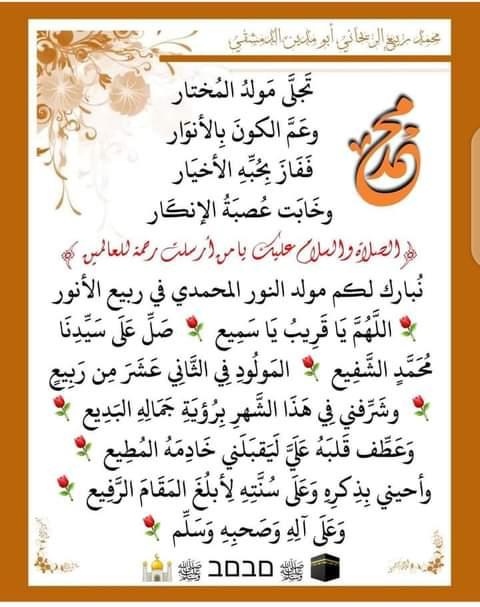 محمد ربيع الريحاني أبو مدين الدمشقي
محمد
تَجَلَّى مَولدُ المُختار
وعَمَّ الكونَ بِالأنوَار
فَفَازَ بِحُبِّهِ الأخيَار
وخَابَت عُصبَةُ الإنكَار
﴿ الصلاة والسلام عليك يا من أرسلت رحمة للعالمين ﴾
نُبارك لكم مولد النور المحمدي في ربيع الأنور
🌹 اللَّهُمَّ يَا قَرِيبُ يَا سَمِيع 🌹 صَلِّ عَلَى سَيِّدِنَا
مُحَمَّدٍ الشَّفِيع 🌹 المَولُودِ فِي الثَّانِي عَشَرَ مِن رَبِيعٍ
🌹 وشَرِّفني فِي هَذَا الشَّهرِ بِرُؤيَةِ جَمَالِهِ البَدِيع 🌹
وَعَطِّف قَلبَهُ عَلَيَّ لَيَقبَلَني خَادِمَهُ المُطِيع 🌹
وأحيني بِذِكرِهِ وَعَلَى سُنَّتِهِ لِأبلُغَ المَقَامَ الرَّفِيع 🌹
وَعَلَى آلِهِ وَصَحبِهِ وَسَلِّم 🌹
ﷺ ﷺ